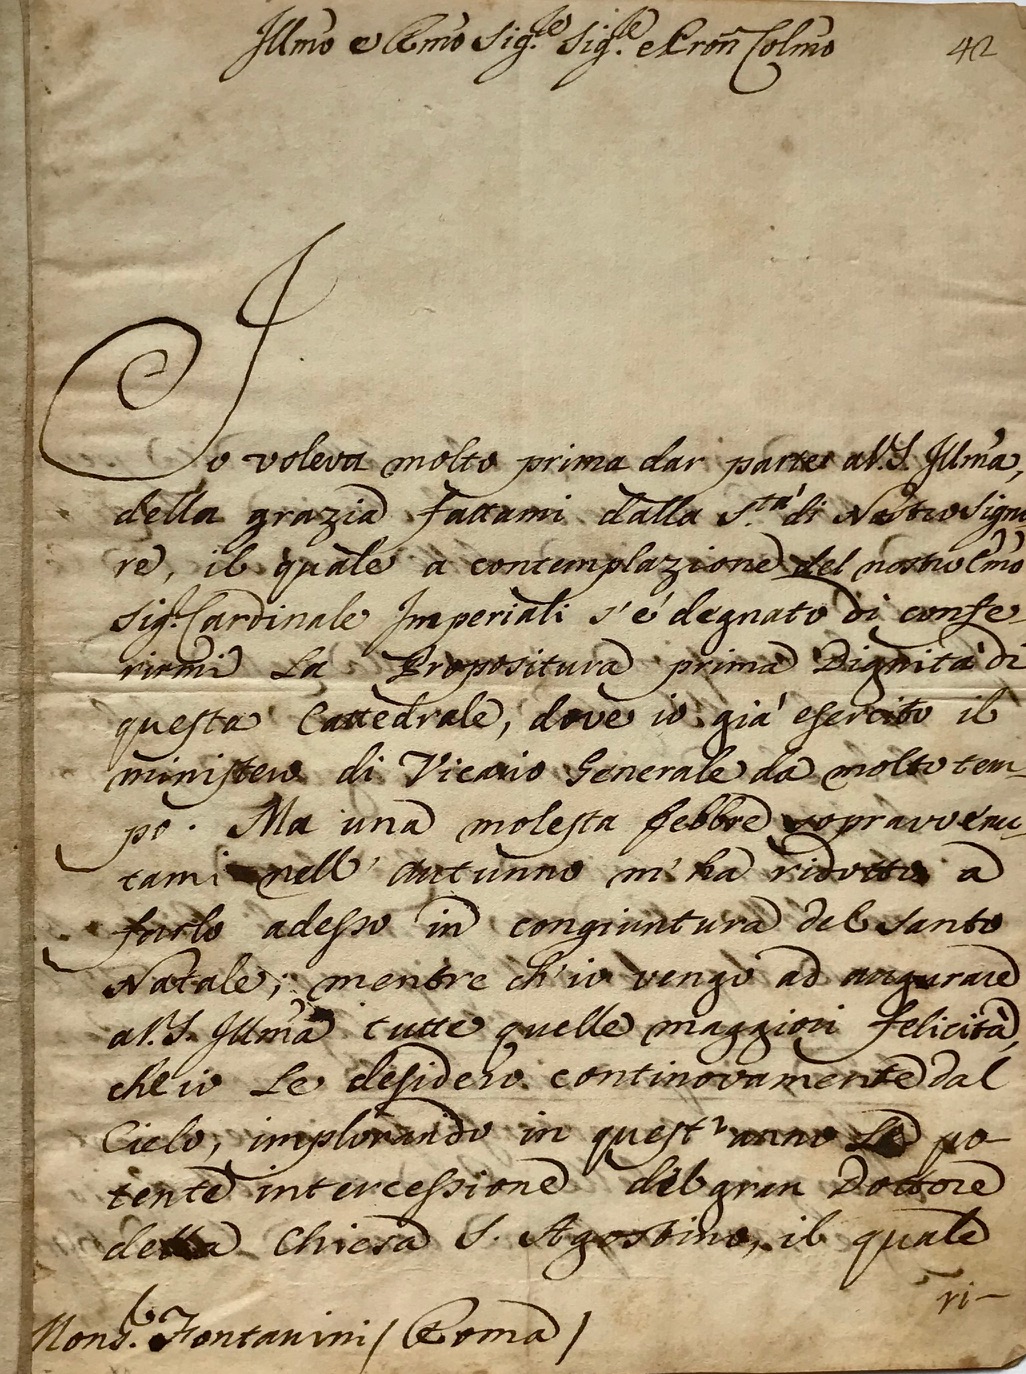 Illmo e Rmo Sig.re Sig.re e Pron Colmo
42
Io voleva molto prima dar parte a V. S. Illma,
della grazia fattami dalla S.tà di Nostro Signo
re, il quale a contemplazione del nostro Emo
Sig.r Cardinale Imperiali s'é degnato di confe-
rirmi La Propositura prima Dignità di
questa Cattedrale, dove io già esercito il
ministero di Vicario Generale da molto tem-
po. Ma una molesta febbre sopravvenu-
tami nell' Autunno m'ha ridotto a
farlo adesso in congiuntura del Santo
Natale; mentre ch'io vengo ad augurare
a V. S. Illma tutte quelle maggiori felicità,
che io Le desidero continovamente dal
Cielo, implorando in quest'anno La po-
tente intercessione del gran Dottore
della Chiesa S. Agostino, il quale
ri-
Mons.r Fontanini / Roma /